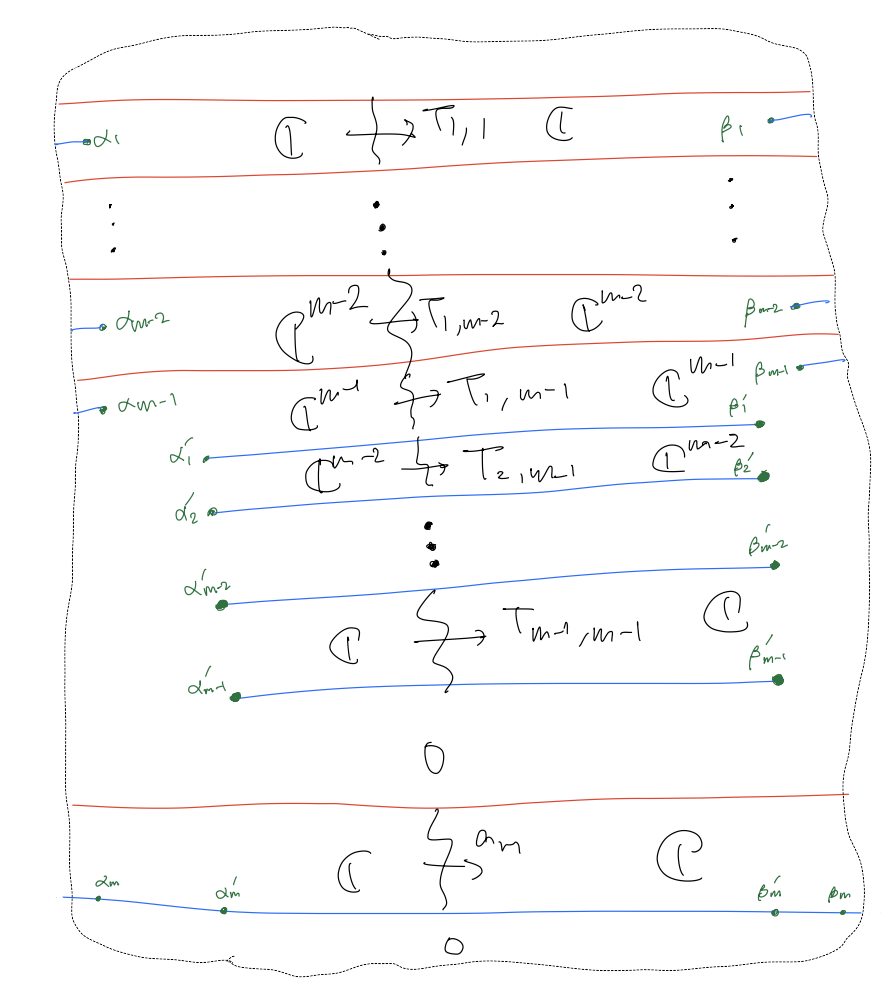 α₁ ℂ T₁,₁ ℂ β₁
⋮ ⋮ ⋮
αₘ₋₂ ℂᵐ⁻² T₁,ₘ₋₂ ℂᵐ⁻² βₘ₋₂
αₘ₋₁ ℂᵐ⁻¹ T₁,ₘ₋₁ ℂᵐ⁻¹ βₘ₋₁
α′₁ β′₁
ℂᵐ⁻² T₂,ₘ₋₁ ℂᵐ⁻²
α′₂ β′₂
⋮
α′ₘ₋₂ β′ₘ₋₂
ℂ Tₘ₋₁,ₘ₋₁ ℂ
α′ₘ₋₁ β′ₘ₋₁
0
ℂ aₘ ℂ
αₘ α′ₘ β′ₘ βₘ
0